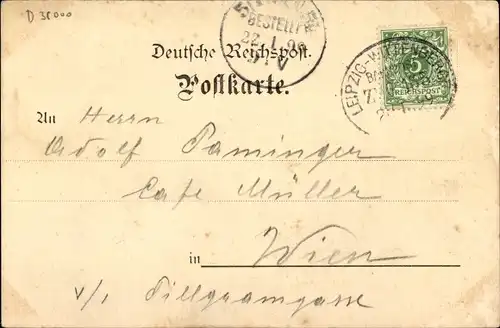 D 38000
BESTELLT
22.1.99
Deutsche Reichspost.
Postkarte.
LEIPZIG-WITTENBERGE
5
REICHSPOST
An Herrn
Adolf Paminger
Cafe Müller
in Wien
V/1 Pillgramgasse